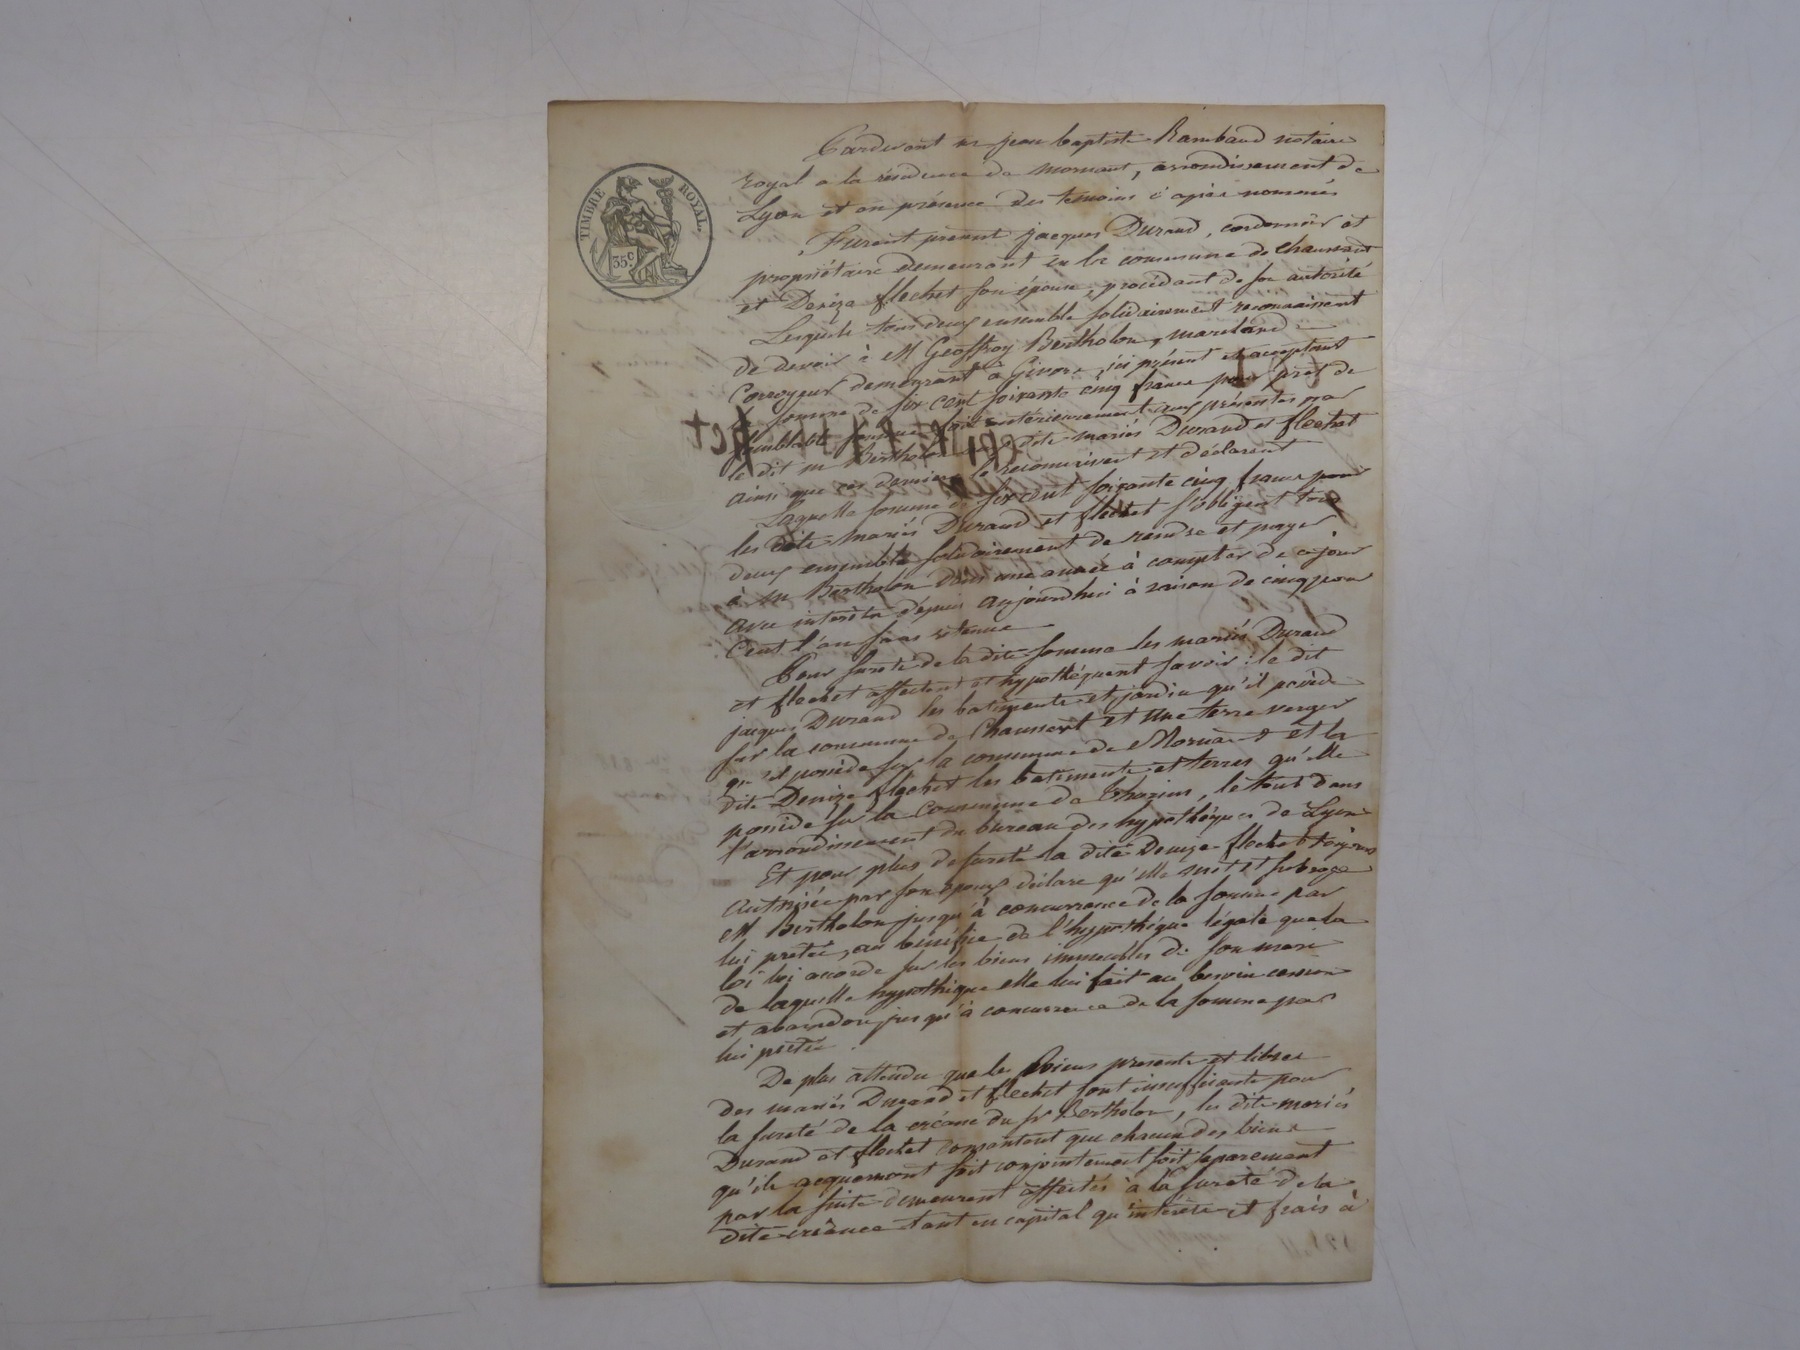 TIMBRE ROYAL.
35 c.
Pardevant me jean baptiste Rambaud notaire
royal a la résidence de Mornant, arrondissement de
Lyon et en présence des témoins c'après nommés
Furent present jacques Durand, cordonnier et
propriétaire demeurant en la commune de chaussant
et Denize flechet son épouse, procédant de son autorité
Lesquels tous deux ensemble solidairement reconnaissent
de devoir à M Geoffroy Bertholon, marchand
Corroyeur demeurant à Givors, ici présent et acceptant
somme de six cent soixante cinq francs pour prêt de
semblable somme fait antérieurement aux présentes par
le dit m Bertholon aux dits mariés Durand et flechet
ainsi que ces derniers le reconnaissent et déclarent
Laquelle somme de six cent soixante cinq francs pour
les dits mariés Durand et flechet s'obligent tous
deux ensemble solidairement de rendre et payer
à m Bertholon dans une année à compter de ce jour
avec intérêts depuis aujourdhui à raison de cinq pour
Cent l'an sans retenue
Pour sureté de la dite somme les mariés Durand
et flechet affectent et hypothéquent savoir : le dit
jacques Durand les batiments et jardin qu'il possède
sur la commune de Chaussant et une terre verger
qu'il possède sur la commune de Mornant et la
dite Denize flechet les batiments et terres qu'elle
possède sur la commune de , le tout dans
l'arrondissement du bureau des hypothéques de Lyon
Et pour plus de sureté la dite Denize flechet toujours
Autorisée par son epoux déclare qu'elle met et subroge
M Bertholon jusqu'à concurrence de la somme par
lui pretée, au bénéfice de l'hypothéque légale que la
loi lui accorde sur les biens immeubles de son mari
de laquelle hypothéque elle lui fait au besoin cession
et abandon jusqu'à concurrence de la somme par
lui pretée.
De plus attendu que les Biens presents et libres
des mariés Durand et flechet sont insuffisants pour
la sureté de la créance du sr Bertholon, les dits mariés
Durand et flechet consentent que chacun des biens
qu'ils acquerront soit conjointement soit séparement
par la suite demeurent affectés à la sureté de la
dite créance tant en capital qu'intérêts et frais à